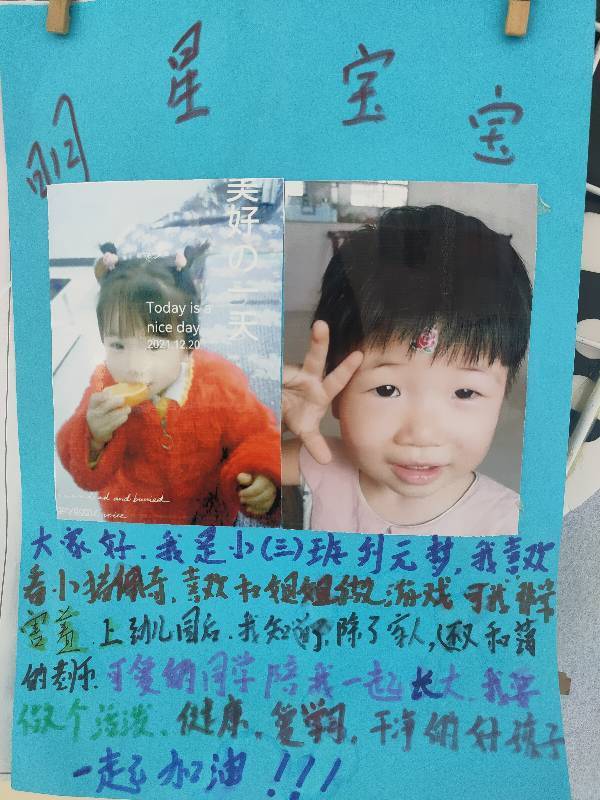 明星宝宝
美好の一天
Today is a
nice day
2021.12.20
dead and buried
大家好.我是小(三)班刘元梦,我喜欢
看小猪佩奇,喜欢和姐姐做游戏 可我非常
害羞.上幼儿园后.我知道了,除了家人,还有和蔼
的老师.可爱的同学陪我一起长大.我要
做个活泼,健康,爱学习,干净的好孩子
一起加油!!!